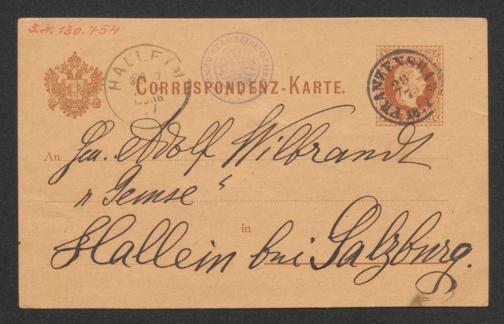 J.N. 130.754
HALLEIN
CORRESPONDENZ-KARTE.
FRANZENSBAD
An
Adolf Wilbrandt
"Gemse"
in
Hallein bei Salzburg.